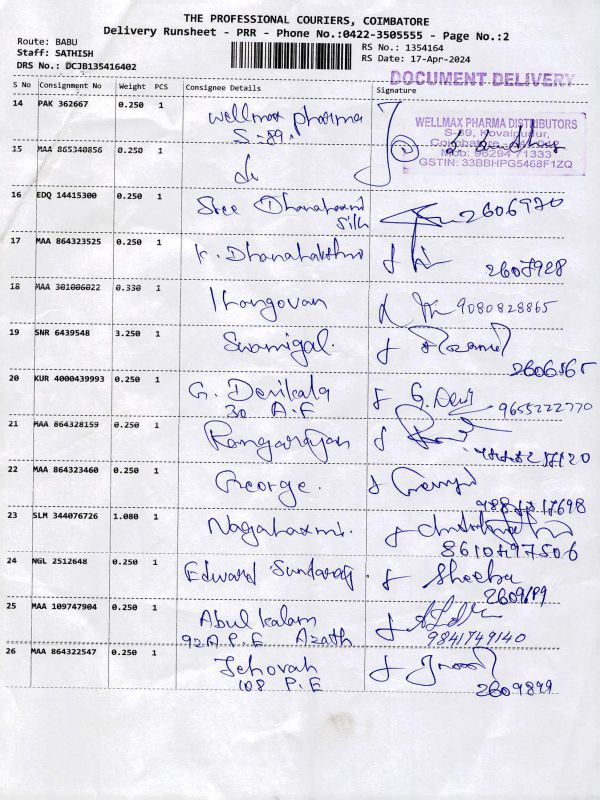 THE PROFESSIONAL COURIERS, COIMBATORE
Delivery Runsheet - PRR - Phone No.:0422-3505555 - Page No.:2
Route: BABU
Staff: SATHISH
DRS No.: DCJB135416402
RS No.: 1354164
RS Date: 17-Apr-2024
DOCUMENT DELIVERY
S No Consignment No Weight PCS Consignee Details Signature
14 PAK 362667 0.250 1 Wellmax pharma
S-89.
WELLMAX PHARMA DISTRIBUTORS
S-89, Kovaipudur,
Coimbatore
Mob: 96294 71333
GSTIN: 33BBHPG5468F1ZQ
15 MAA 865340856 0.250 1
16 EDQ 14415300 0.250 1 Sree Dhanalaxmi
Silk
2606970
17 MAA 864323525 0.250 1 K. Dhanalakshmi
2607928
18 MAA 301006022 0.330 1 Ilangovan 9080828865
19 SNR 6439548 3.250 1 Swamigal.
2606565
20 KUR 4000439993 0.250 1 G. Devikala G. Devi
30 A.F 9655222770
21 MAA 864328159 0.250 1 Rangarajan
22 MAA 864323460 0.250 1 George.
23 SLM 344076726 1.080 1 Nagalaxmi.
8610497506
24 NGL 2512648 0.250 1 Edward Sundaraj. Sheeba
2609199
25 MAA 109747904 0.250 1 Abul Kalam
92 A.P.F Azath 9841749140
26 MAA 864322547 0.250 1 Jehovah
108 P.F 2609899